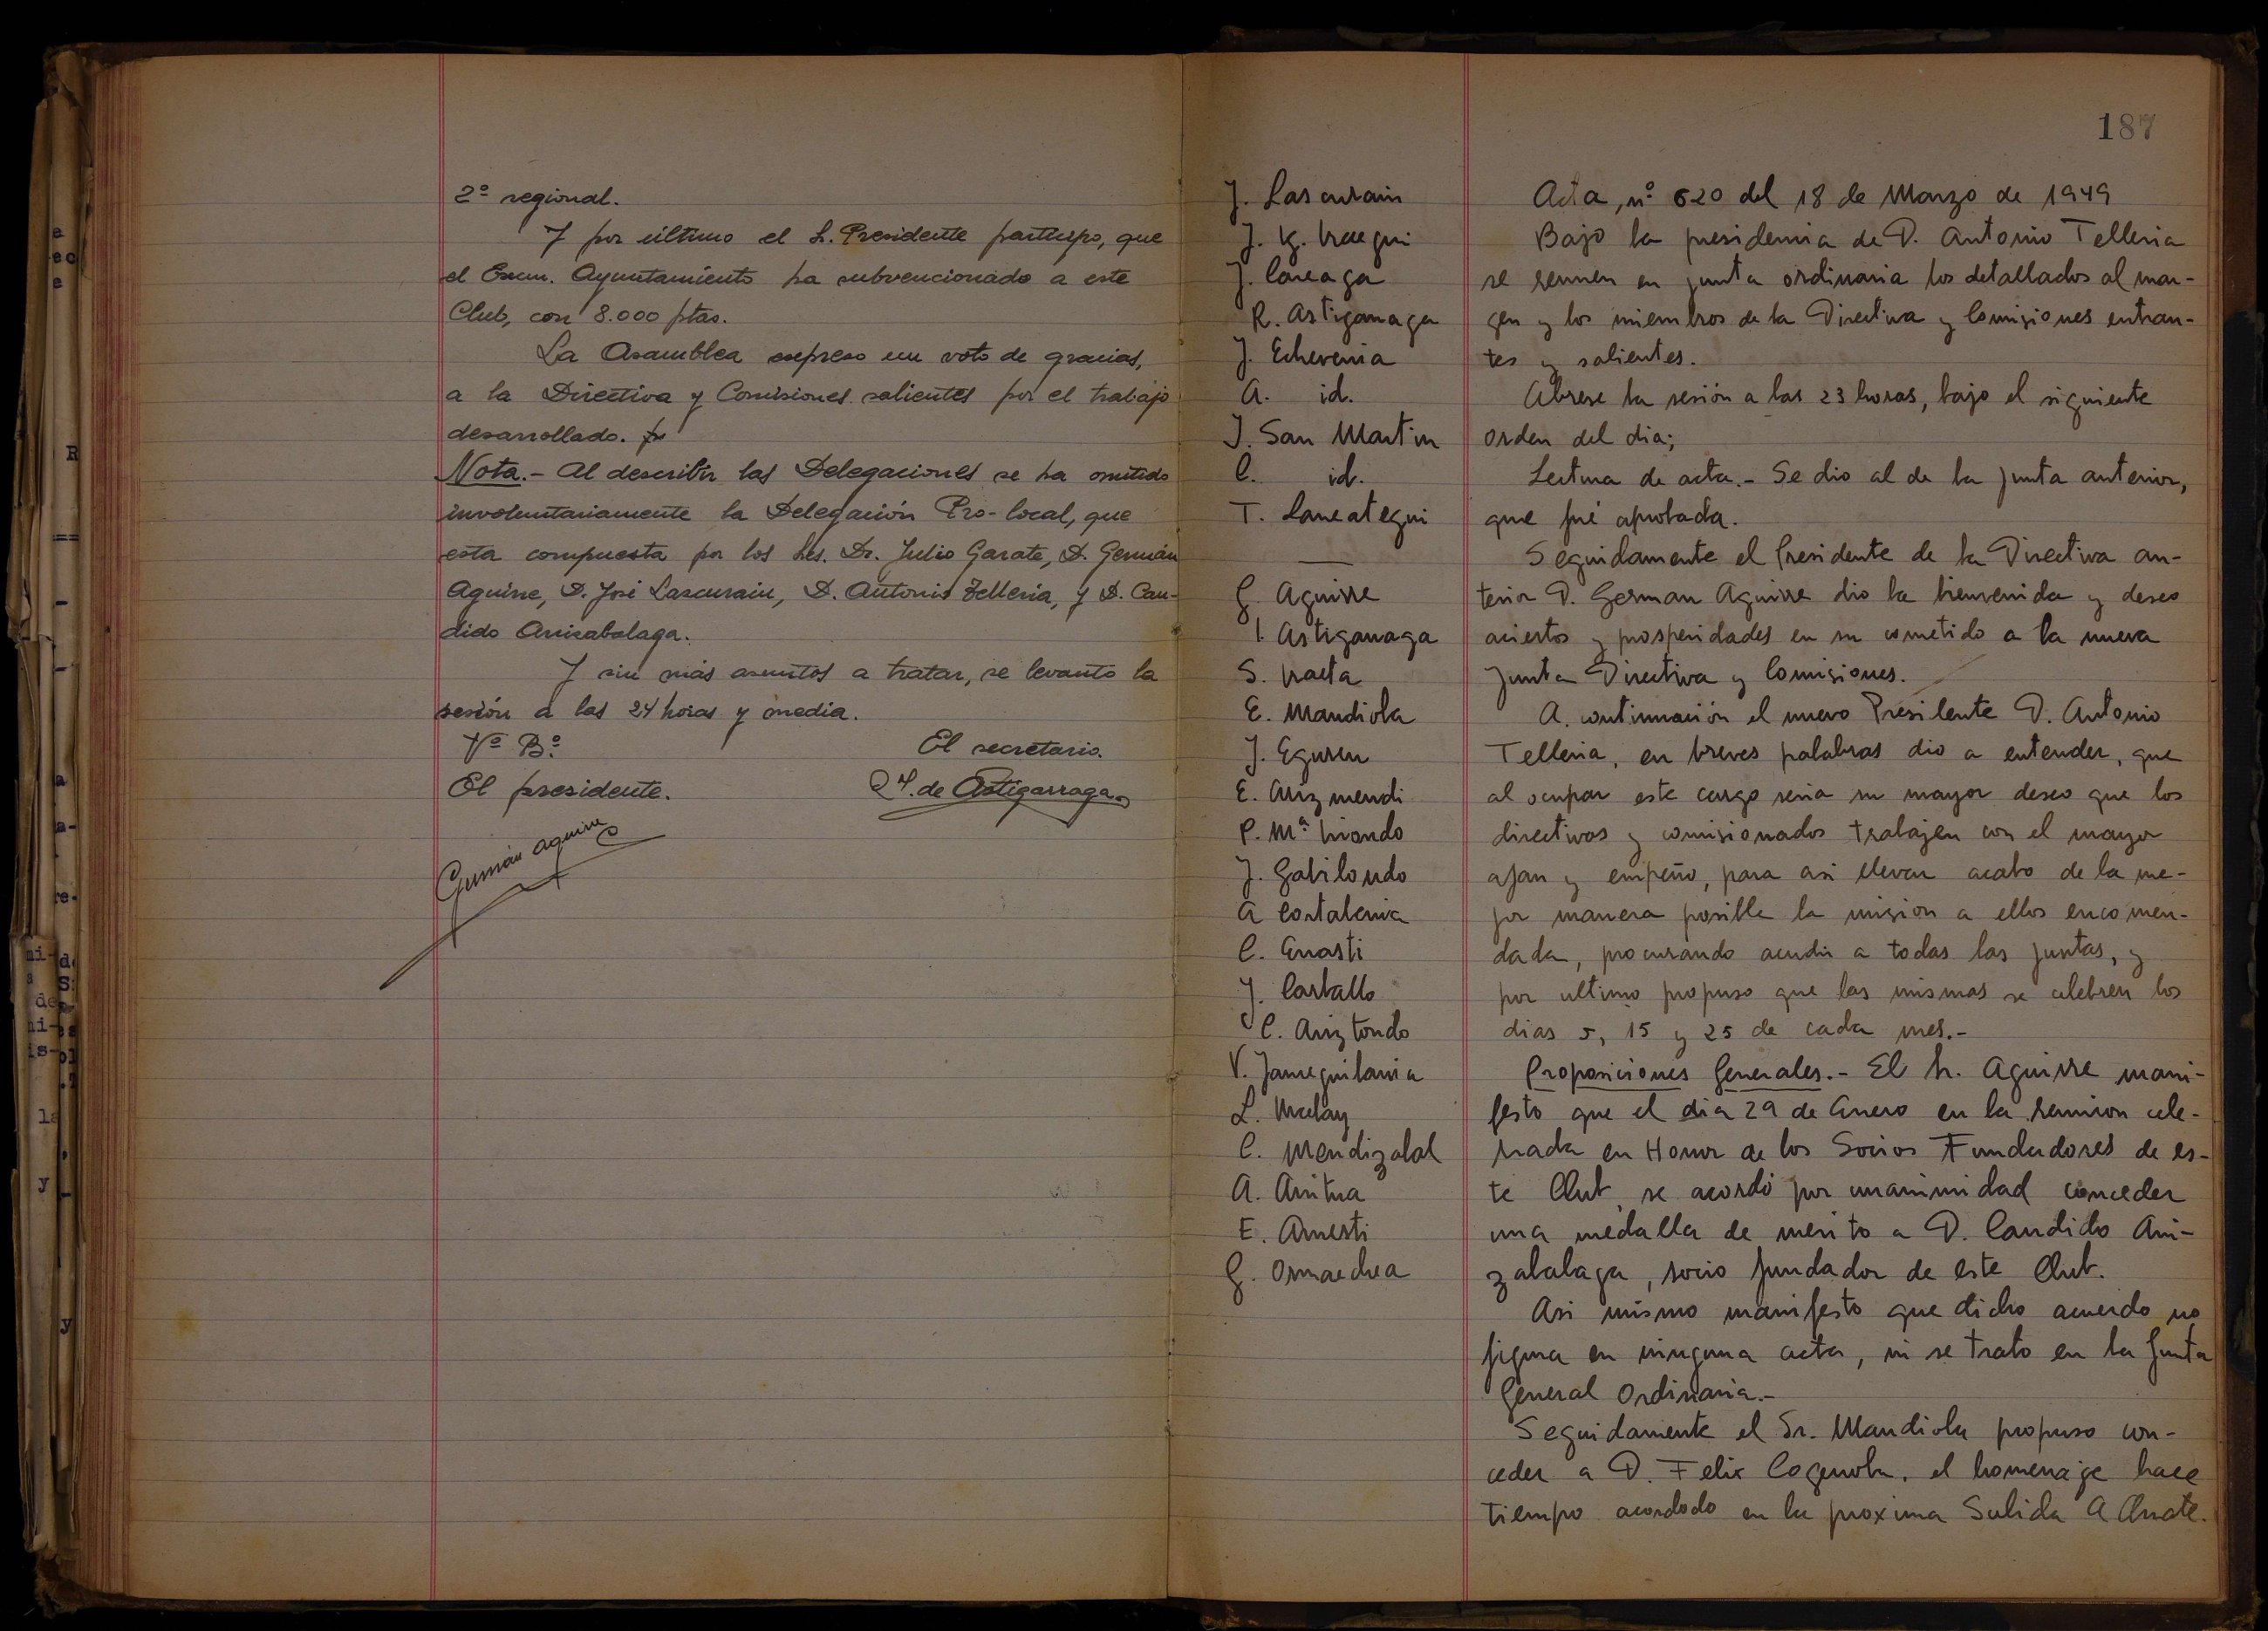 2º regional.
Y por último el Sr. Presidente participo, que
el Excm. Ayuntamiento ha subvencionado a este
Club, con 8.000 ptas.
La Asamblea expreso un voto de gracias,
a la Directiva y Comisiones salientes por el trabajo
desarrollado.
Nota.- Al describir las Delegaciones se ha omitido
involuntariamente la Delegación Pro-local, que
esta compuesta por los Srs. Dr. Julio Garate, D. Germán
Aguirre, D. José Lascurain, D. Antonio Telleria, y D. Can-
dido Arrizabalaga.
Y sin más asuntos a tratar, se levanto la
sesión a las 24 horas y media.
Vº Bº
El secretario.
El presidente.
de Astigarraga
Germán Aguirre
187
J. Lascurain
J.
J. Careaga
R. Astigarraga
J. Echeverria
A. id.
J. San Martin
C. id.
T. Larreategui
G. Aguirre
I. Astigarraga
S. Iraeta
E. Mandiola
J. Eguren
E. Arizmendi
P. Mª Iriondo
J. Gabilondo
A
C. Enasti
J. Carballo
C. Ariztondo
V. Jaureguilarria
L.
C. Mendizabal
A. Aritua
E. Arriesti
G. Ormaechea
Acta, nº 620 del 18 de Marzo de 1949
Bajo la presidencia de D. Antonio Telleria
se reunen en junta ordinaria los detallados al mar-
gen y los miembros de la Directiva y Comisiones entran-
tes y salientes.
Abrese la sesión a las 23 horas, bajo el siguiente
orden del dia;
Lectura de acta.- Se dio al de la junta anterior,
que fué aprobada.
Seguidamente el Presidente de la Directiva an-
terior D. German Aguirre dio la bienvenida y deseo
aciertos y prosperidades en su cometido a la nueva
junta Directiva y Comisiones.
A. continuación el nuevo Presidente D. Antonio
Telleria, en breves palabras dio a entender, que
al ocupar este cargo seria su mayor deseo que los
directivos y comisionados trabajen con el mayor
afan y empeño, para asi llevar acabo de la me-
jor manera posible la mision a ellos encomen-
dada, procurando acudir a todas las juntas, y
por ultimo propuso que las mismas se celebren los
dias 5, 15 y 25 de cada mes.-
Proposiciones Generales.- El Sr. Aguirre mani-
festo que el dia 29 de Enero en la reunion cele-
brada en Honor de los Socios Fundadores de es-
te Club, se acordó por unanimidad conceder
una medalla de merito a D. Candido Arri-
zabalaga, socio fundador de este Club.
Asi mismo manifesto que dicho acuerdo no
figura en ninguna acta, ni se trato en la Junta
General Ordinaria.-
Seguidamente el Sr. Mandiola propuso con-
ceder a D. Felix Cogenola, el homenaje hace
tiempo acordado en la proxima Subida A Arrate.